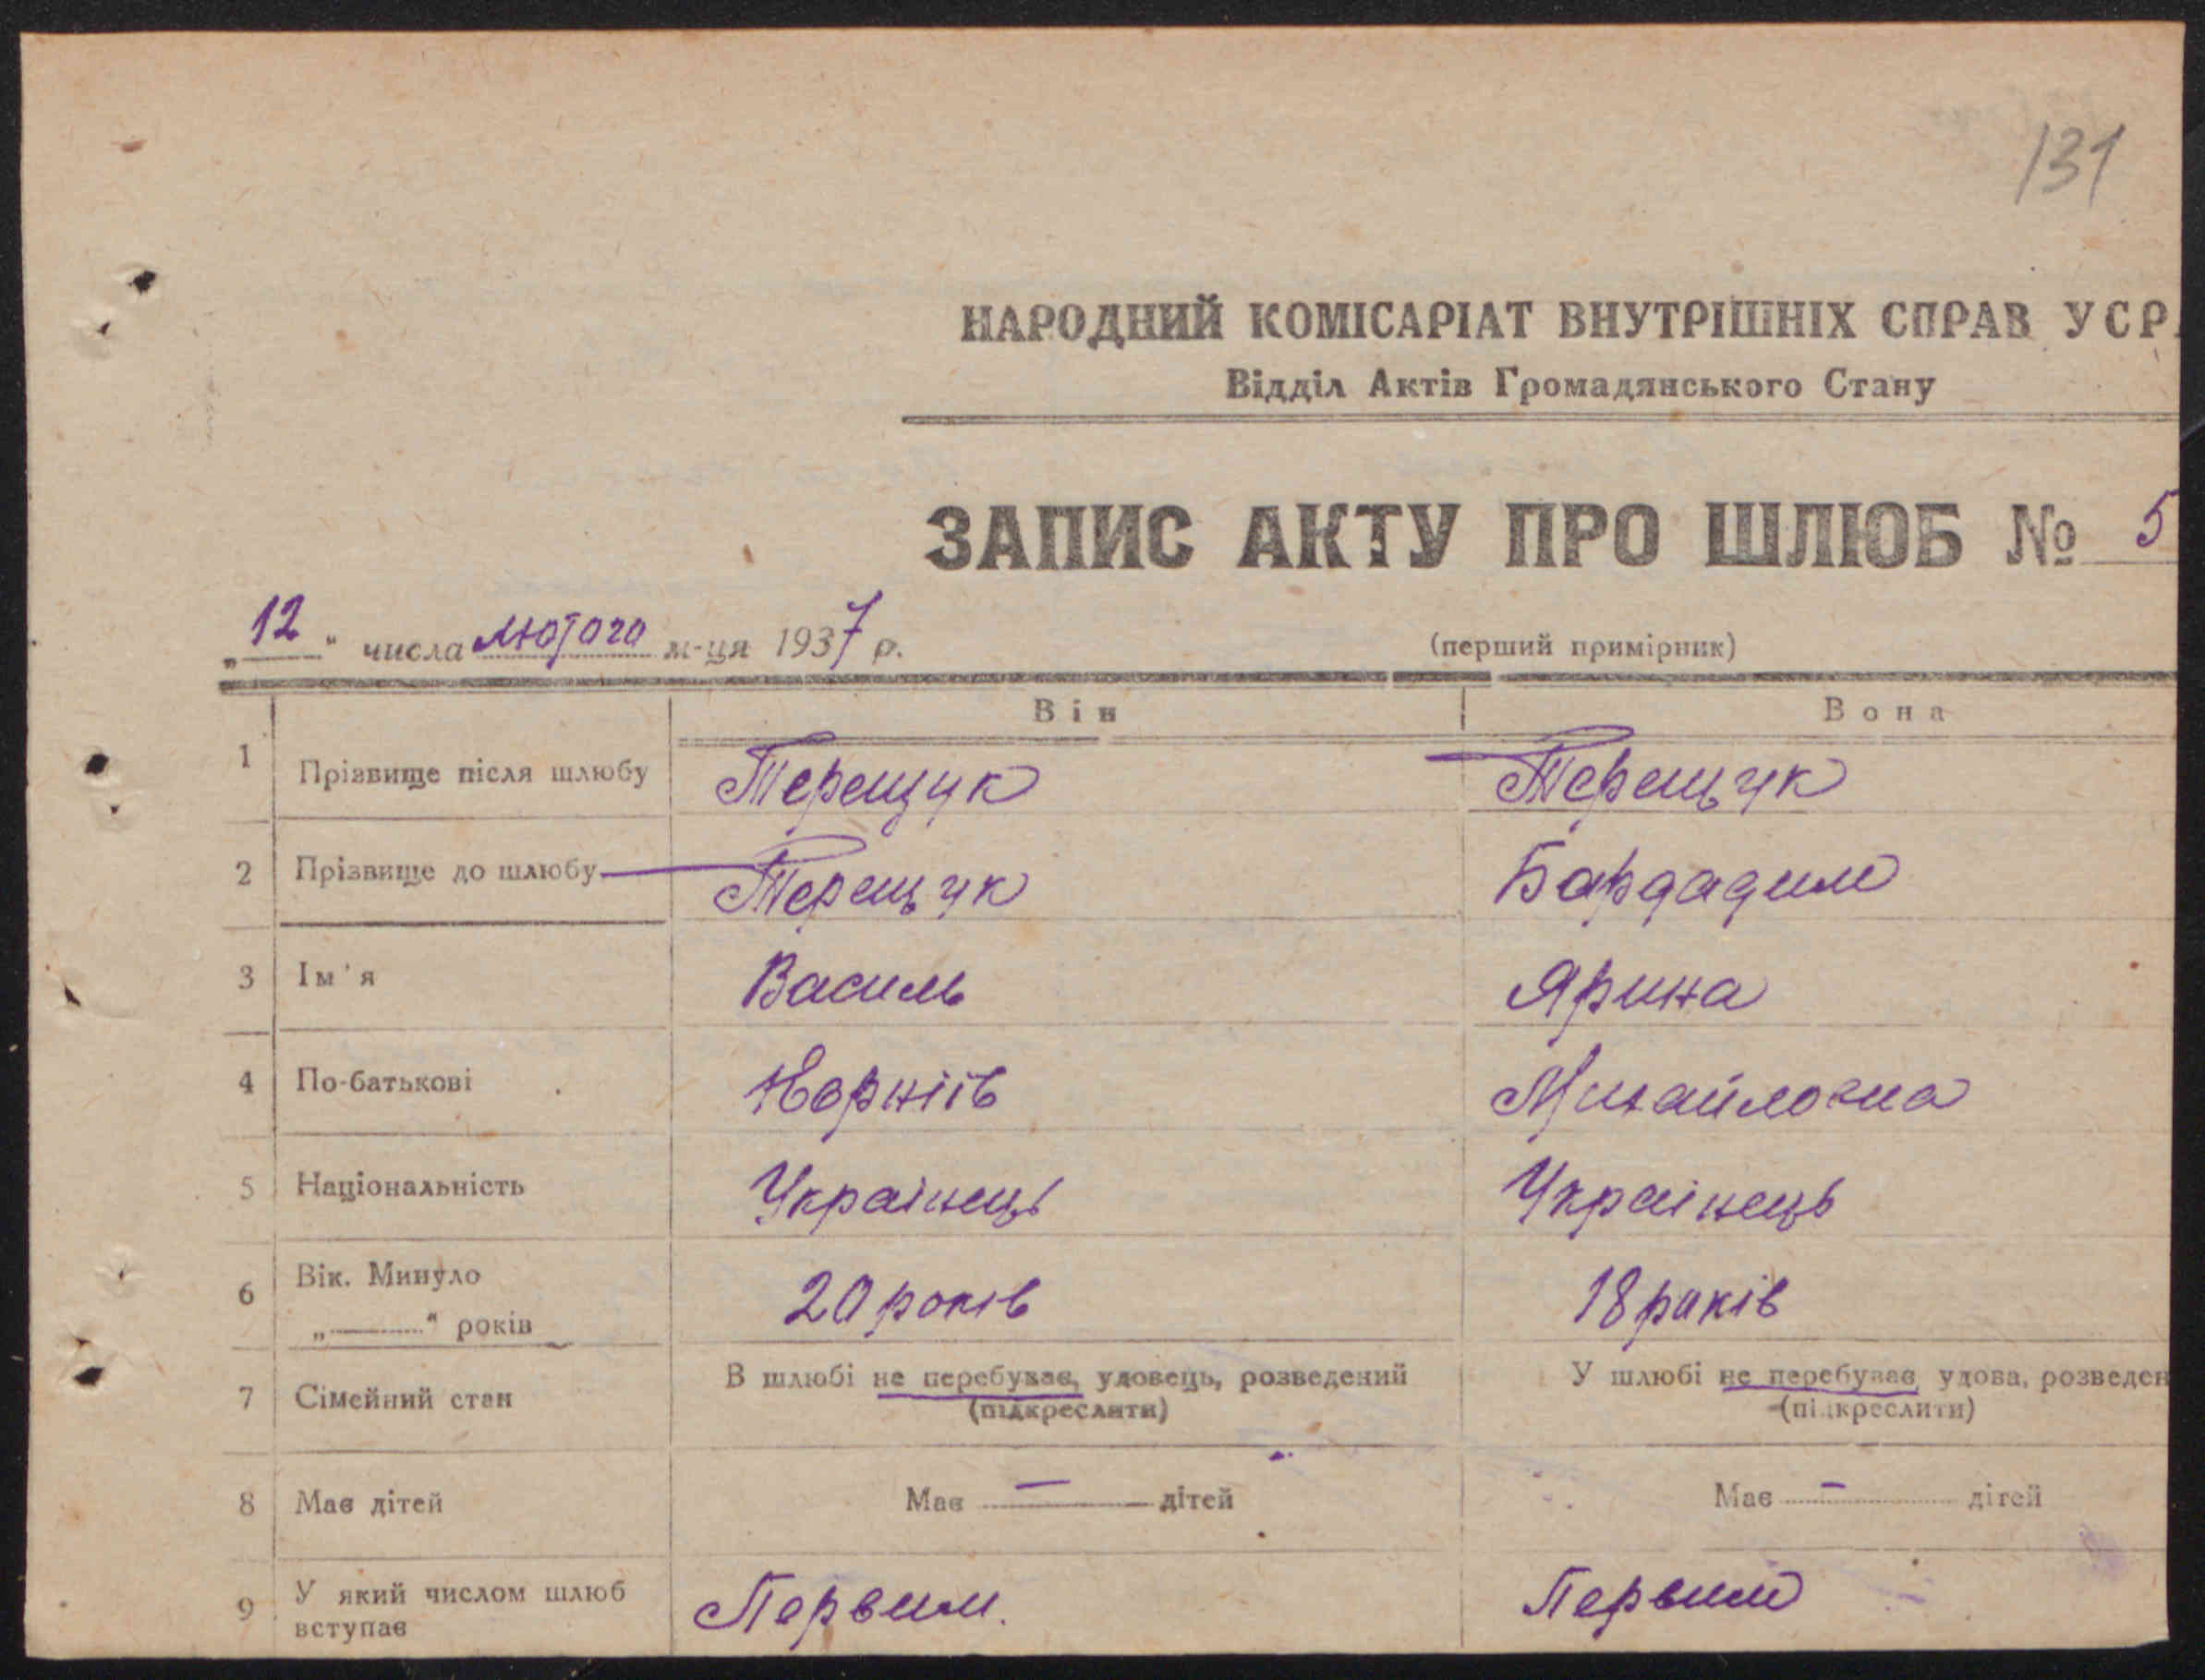 131
НАРОДНИЙ КОМІСАРІАТ ВНУТРІШНІХ СПРАВ УСР
Відділ Актів Громадянського Стану
ЗАПИС АКТУ ПРО ШЛЮБ № 5
„12“ числа лютого м-ця 1937 р.
(перший примірник)
Він Вона
1 Прізвище після шлюбу Терещук Терещук
2 Прізвище до шлюбу Терещук Бардадим
3 Ім'я Василь Ярина
4 По-батькові Корніїв Михайловна
5 Національність Українець Українець
6 Вік. Минуло
„ “ років 20 років 18 років
7 Сімейний стан В шлюбі не перебуває, удовець, розведений У шлюбі не перебуває, удова, розведен
(підкреслити) (підкреслити)
8 Має дітей Має — дітей Має — дітей
9 У який числом шлюб
вступає Первим. Первим